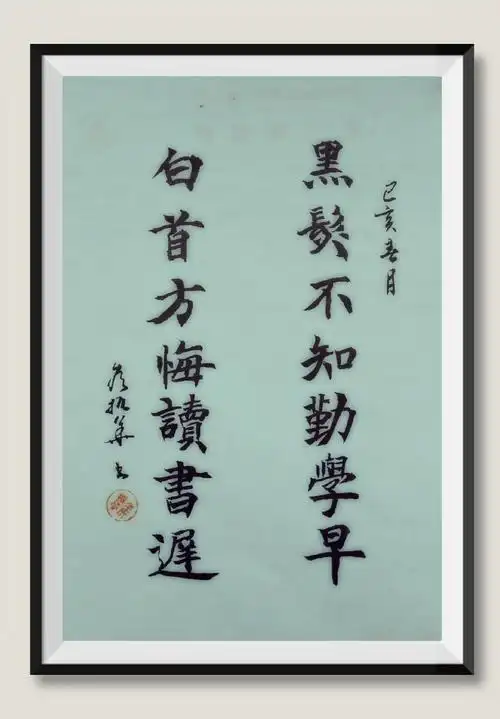 己亥春月
黑髮不知勤學早
白首方悔讀書遲